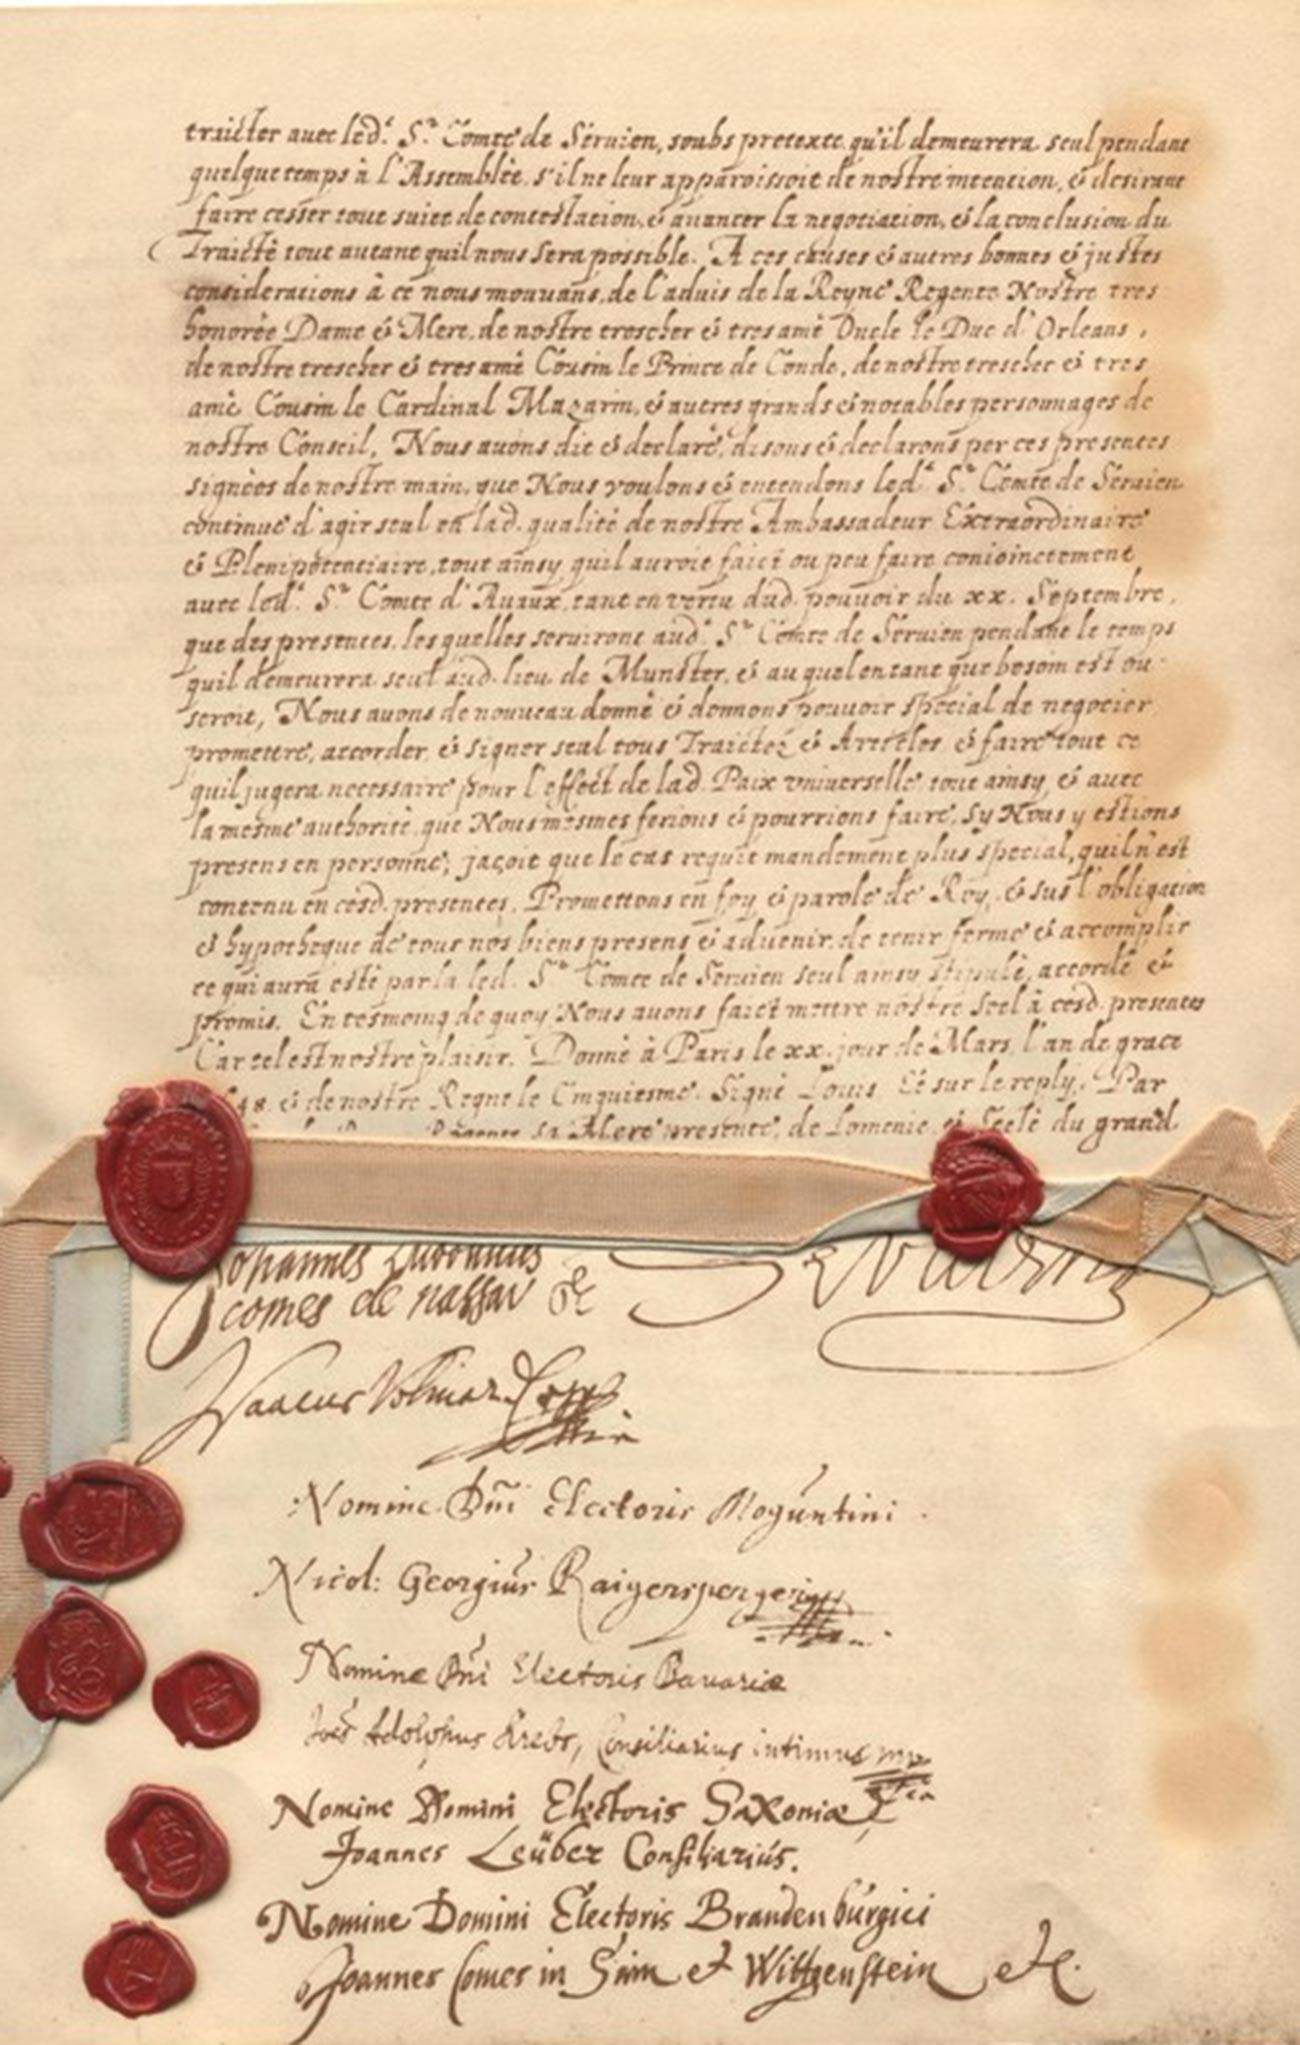 traicter auec led.t S.r Comte de Seruien, soubs pretexte qu'il demeurera seul pendant
quelque temps à l'Assemblée, s'il ne leur apparoissoit de nostre intention, & desirant
faire cesser tout suiet de contestation, & auancer la negotiation, & la conclusion du
Traicté tout autant quil nous sera possible. A ces causes & autres bonnes & justes
considerations à ce nous mouuans, de l'aduis de la Reyne Regente Nostre tres
honorée Dame & Mere, de nostre trescher & tresamé Oncle le Duc d'Orleans,
de nostre trescher & tresamé Cousin le Prince de Conde, de nostre trescher & tres
amé Cousin le Cardinal Mazarin, & autres grands & notables personnages de
nostre Conseil, Nous auons dit & declaré, disons & declarons per ces presentes
signées de nostre main, que Nous voulons & entendons led.t S.r Comte de Seruien
continue d'agir seul en lad. qualité de nostre Ambassadeur Extraordinaire
& Plenipotentiaire, tout ainsy quil auroit faict ou peu faire conioinctement
auec led.t S.r Comte d'Auaux, tant en vertu dud. pouuoir du xx. Septembre,
que des presentes, lesquelles seruiront aud.t S.r Comte de Seruien pendant le temps
quil demeurera seul aud. lieu de Munster, & auquel entant que besoin est ou
seroit, Nous auons de nouueau donné & donnons pouuoir special de negocier
promettre, accorder & signer seul tous Traictez & Articles, & faire tout ce
quil jugera necessaire pour l'effect de lad. Paix vniuerselle tout ainsy & auec
la mesme authorité que Nous mesmes ferions & pourrions faire, sy Nous y estions
presens en personne, jaçoit que le cas requit mandement plus special, quil n'est
contenu en cesd. presentes. Promettons en foy & parole de Roy, & sus l'obligation
& hypotheque de tous nos biens presens & aduenir, de tenir ferme & accomplir
ce qui aura esté par la led. S.r Comte de Seruien seul ainsy stipulé, accordé &
promis. En tesmoing de quoy Nous auons faict mettre nostre Seel à cesd. presentes
Car tel est nostre plaisir. Donné à Paris le xx. jour de Mars, l'an de grace
48. & de nostre Regne le Cinquiesme. Signé Louis Et sur le reply, Par
Regente sa Mere presente, de Lomenie, & Seelé du grand
Johannes Ludovicus
comes de nassau &c
Servien
Isaacus Volmar
Nomine Dni Electoris Moguntini
Nicol: Georgius Raigersperger
Nomine Dni Electoris Bauariæ
Joes Adolphus Krebs, Consiliarius intimus mp
Nomine Domini Electoris Saxoniæ
Joannes Leüber Consiliariús.
Nomine Domini Electoris Brandenbúrgici
Joannes Comes in Sain et Wittgenstein etc.